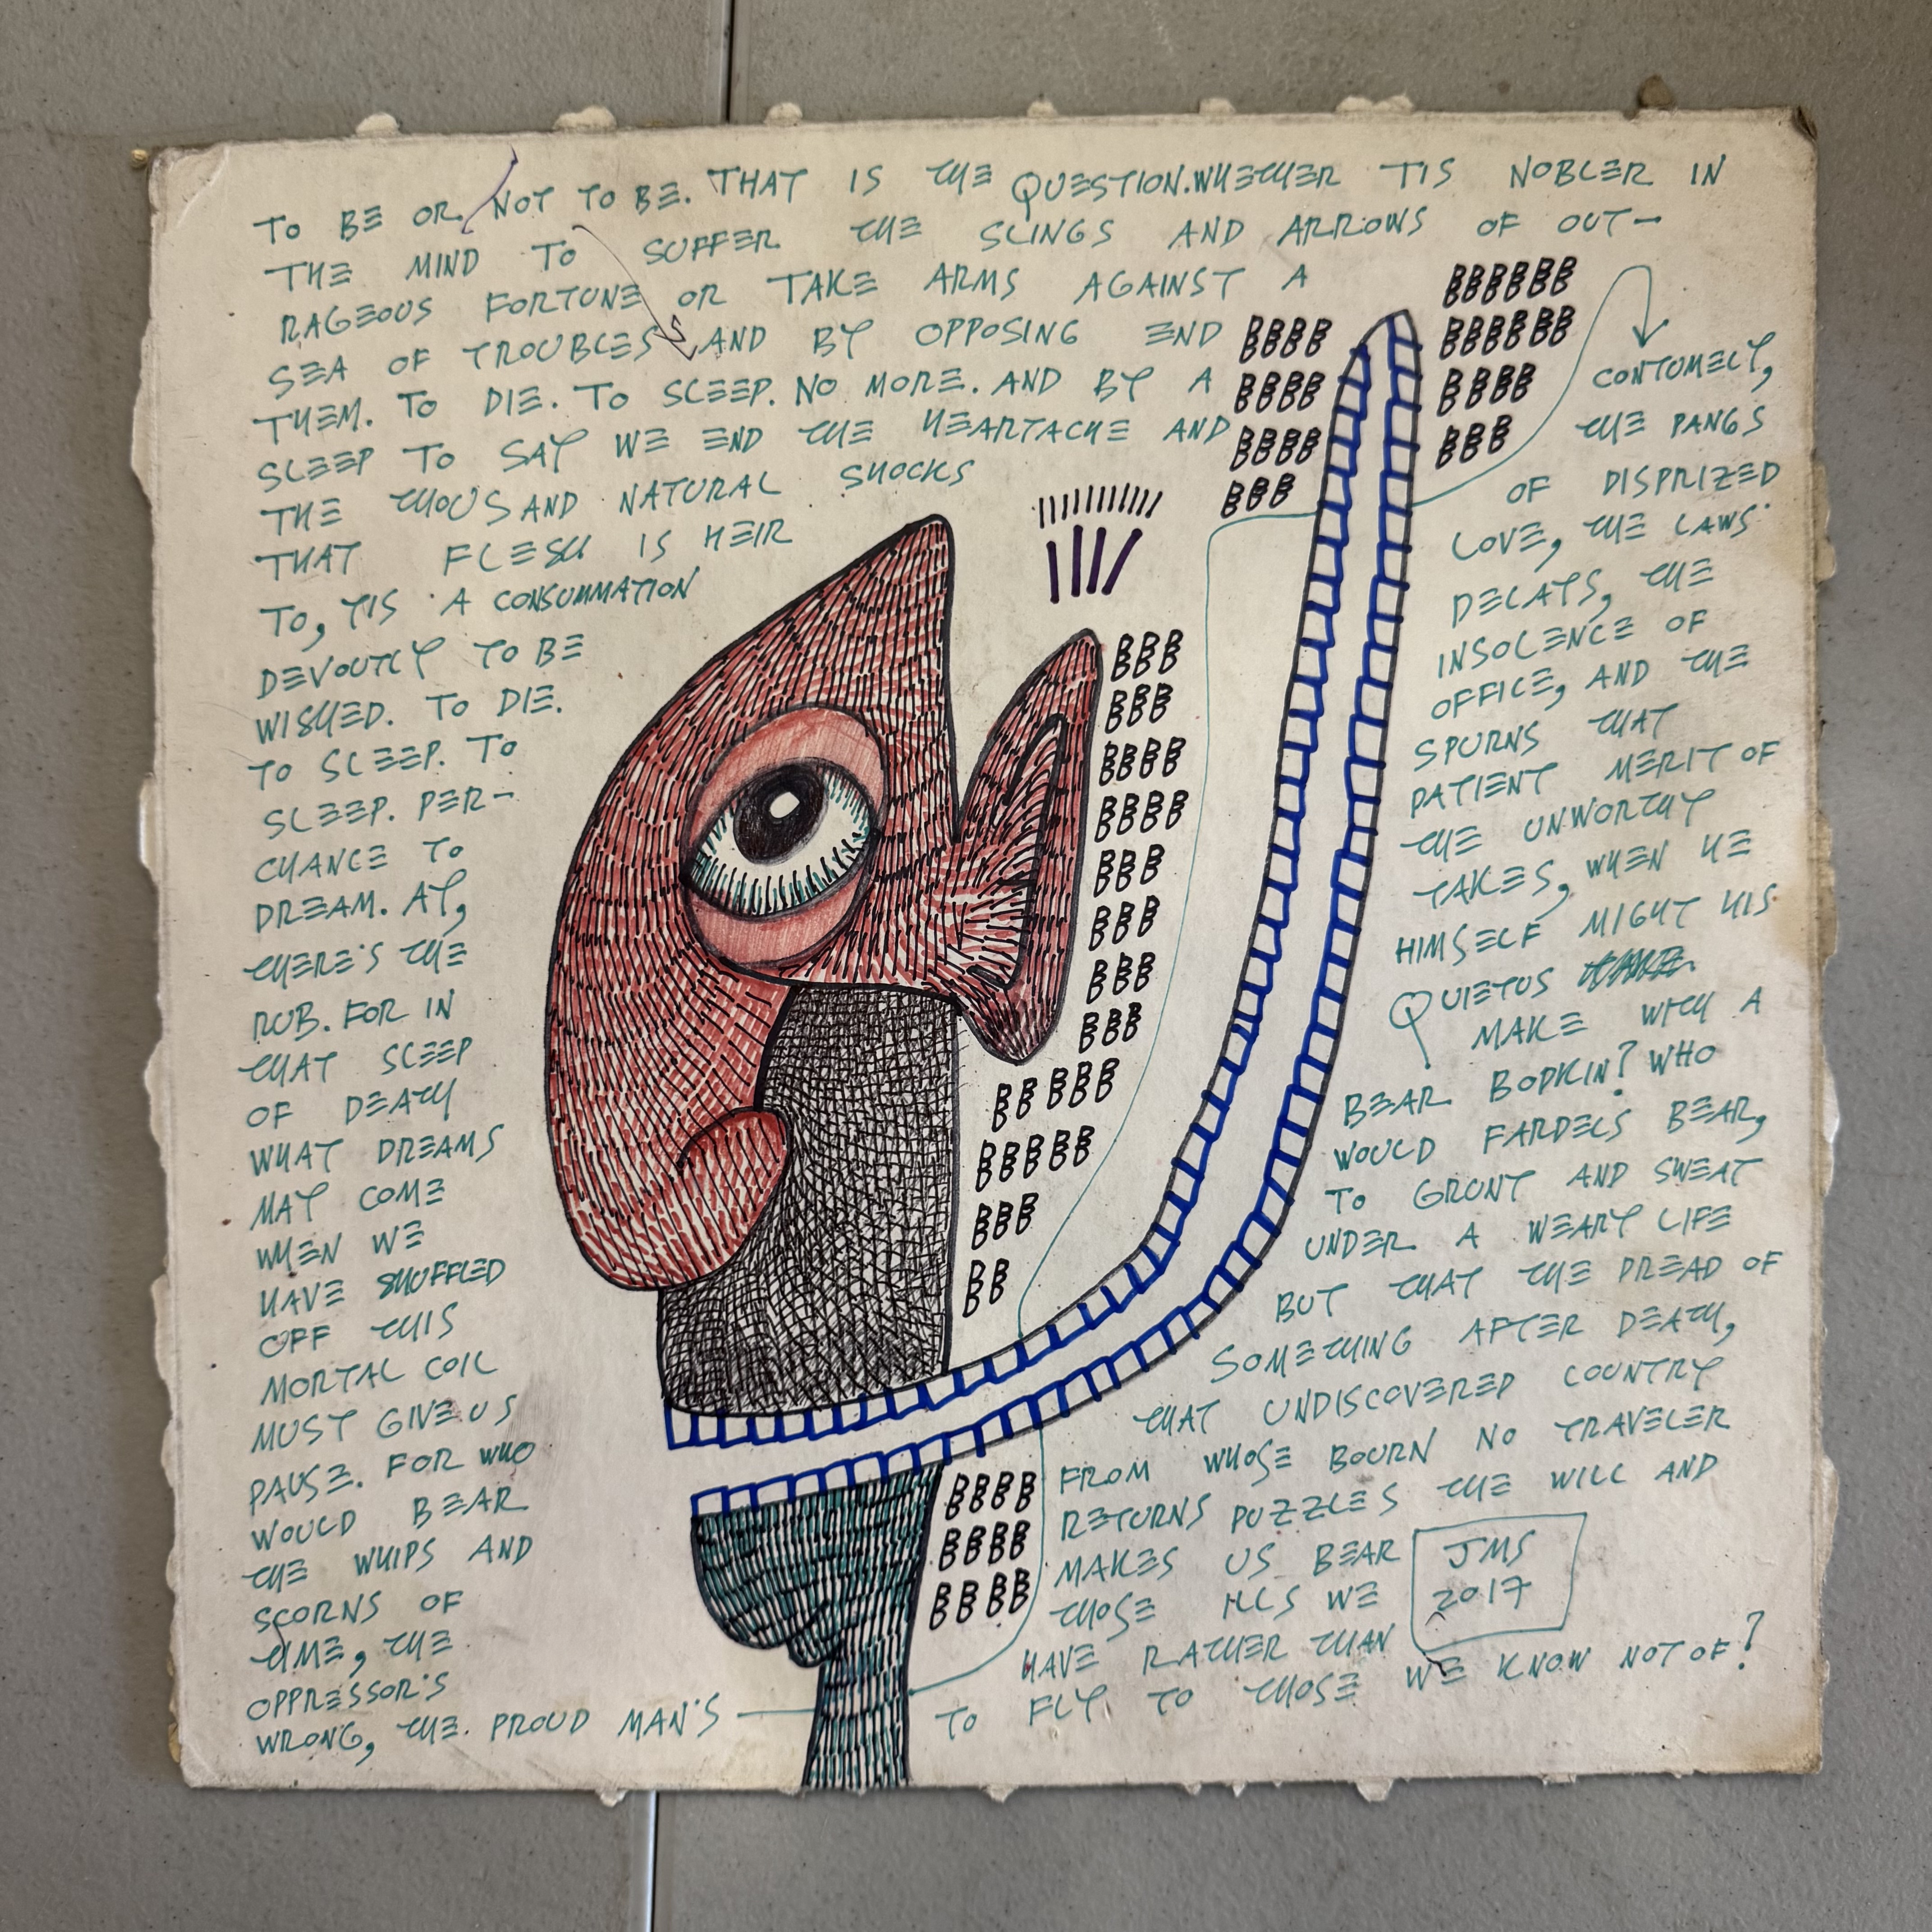 TO BE OR NOT TO BE. THAT IS THE QUESTION. WHETHER TIS NOBLER IN
THE MIND TO SUFFER THE SLINGS AND ARROWS OF OUT-
RAGEOUS FORTUNE OR TAKE ARMS AGAINST A
SEA OF TROUBLES AND BY OPPOSING END
THEM. TO DIE. TO SLEEP. NO MORE. AND BY A
SLEEP TO SAY WE END THE HEARTACHE AND
THE THOUSAND NATURAL SHOCKS
THAT FLESH IS HEIR
TO, TIS A CONSUMMATION
DEVOUTLY TO BE
WISHED. TO DIE.
TO SLEEP. TO
SLEEP. PER-
CHANCE TO
DREAM. AY,
THERE'S THE
RUB. FOR IN
THAT SLEEP
OF DEATH
WHAT DREAMS
MAY COME
WHEN WE
HAVE SHUFFLED
OFF THIS
MORTAL COIL
MUST GIVE US
PAUSE. FOR WHO
WOULD BEAR
THE WHIPS AND
SCORNS OF
TIME, THE
OPPRESSOR'S
WRONG, THE PROUD MAN'S
CONTUMELY,
THE PANGS
OF DISPRIZED
LOVE, THE LAWS'
DELAYS, THE
INSOLENCE OF
OFFICE, AND THE
SPURNS THAT
PATIENT MERIT OF
THE UNWORTHY
TAKES, WHEN HE
HIMSELF MIGHT HIS
QUIETUS
MAKE WITH A
BEAR BODKIN? WHO
WOULD FARDELS BEAR,
TO GRUNT AND SWEAT
UNDER A WEARY LIFE
BUT THAT THE DREAD OF
SOMETHING AFTER DEATH,
THAT UNDISCOVERED COUNTRY
FROM WHOSE BOURN NO TRAVELER
RETURNS PUZZLES THE WILL AND
MAKES US BEAR
THOSE ILLS WE
HAVE RATHER THAN
TO FLY TO THOSE WE KNOW NOT OF?
JMS
2017
BBBB
BBBB
BBBB
BBB
BBBBBB
BBBBBB
BBBB
BBB
BBB
BBB
BBBB
BBBB
BBB
BBB
BBB
BBB
BB BBB
BBBBB
BBB
BB
BBBB
BBBB
BBBB